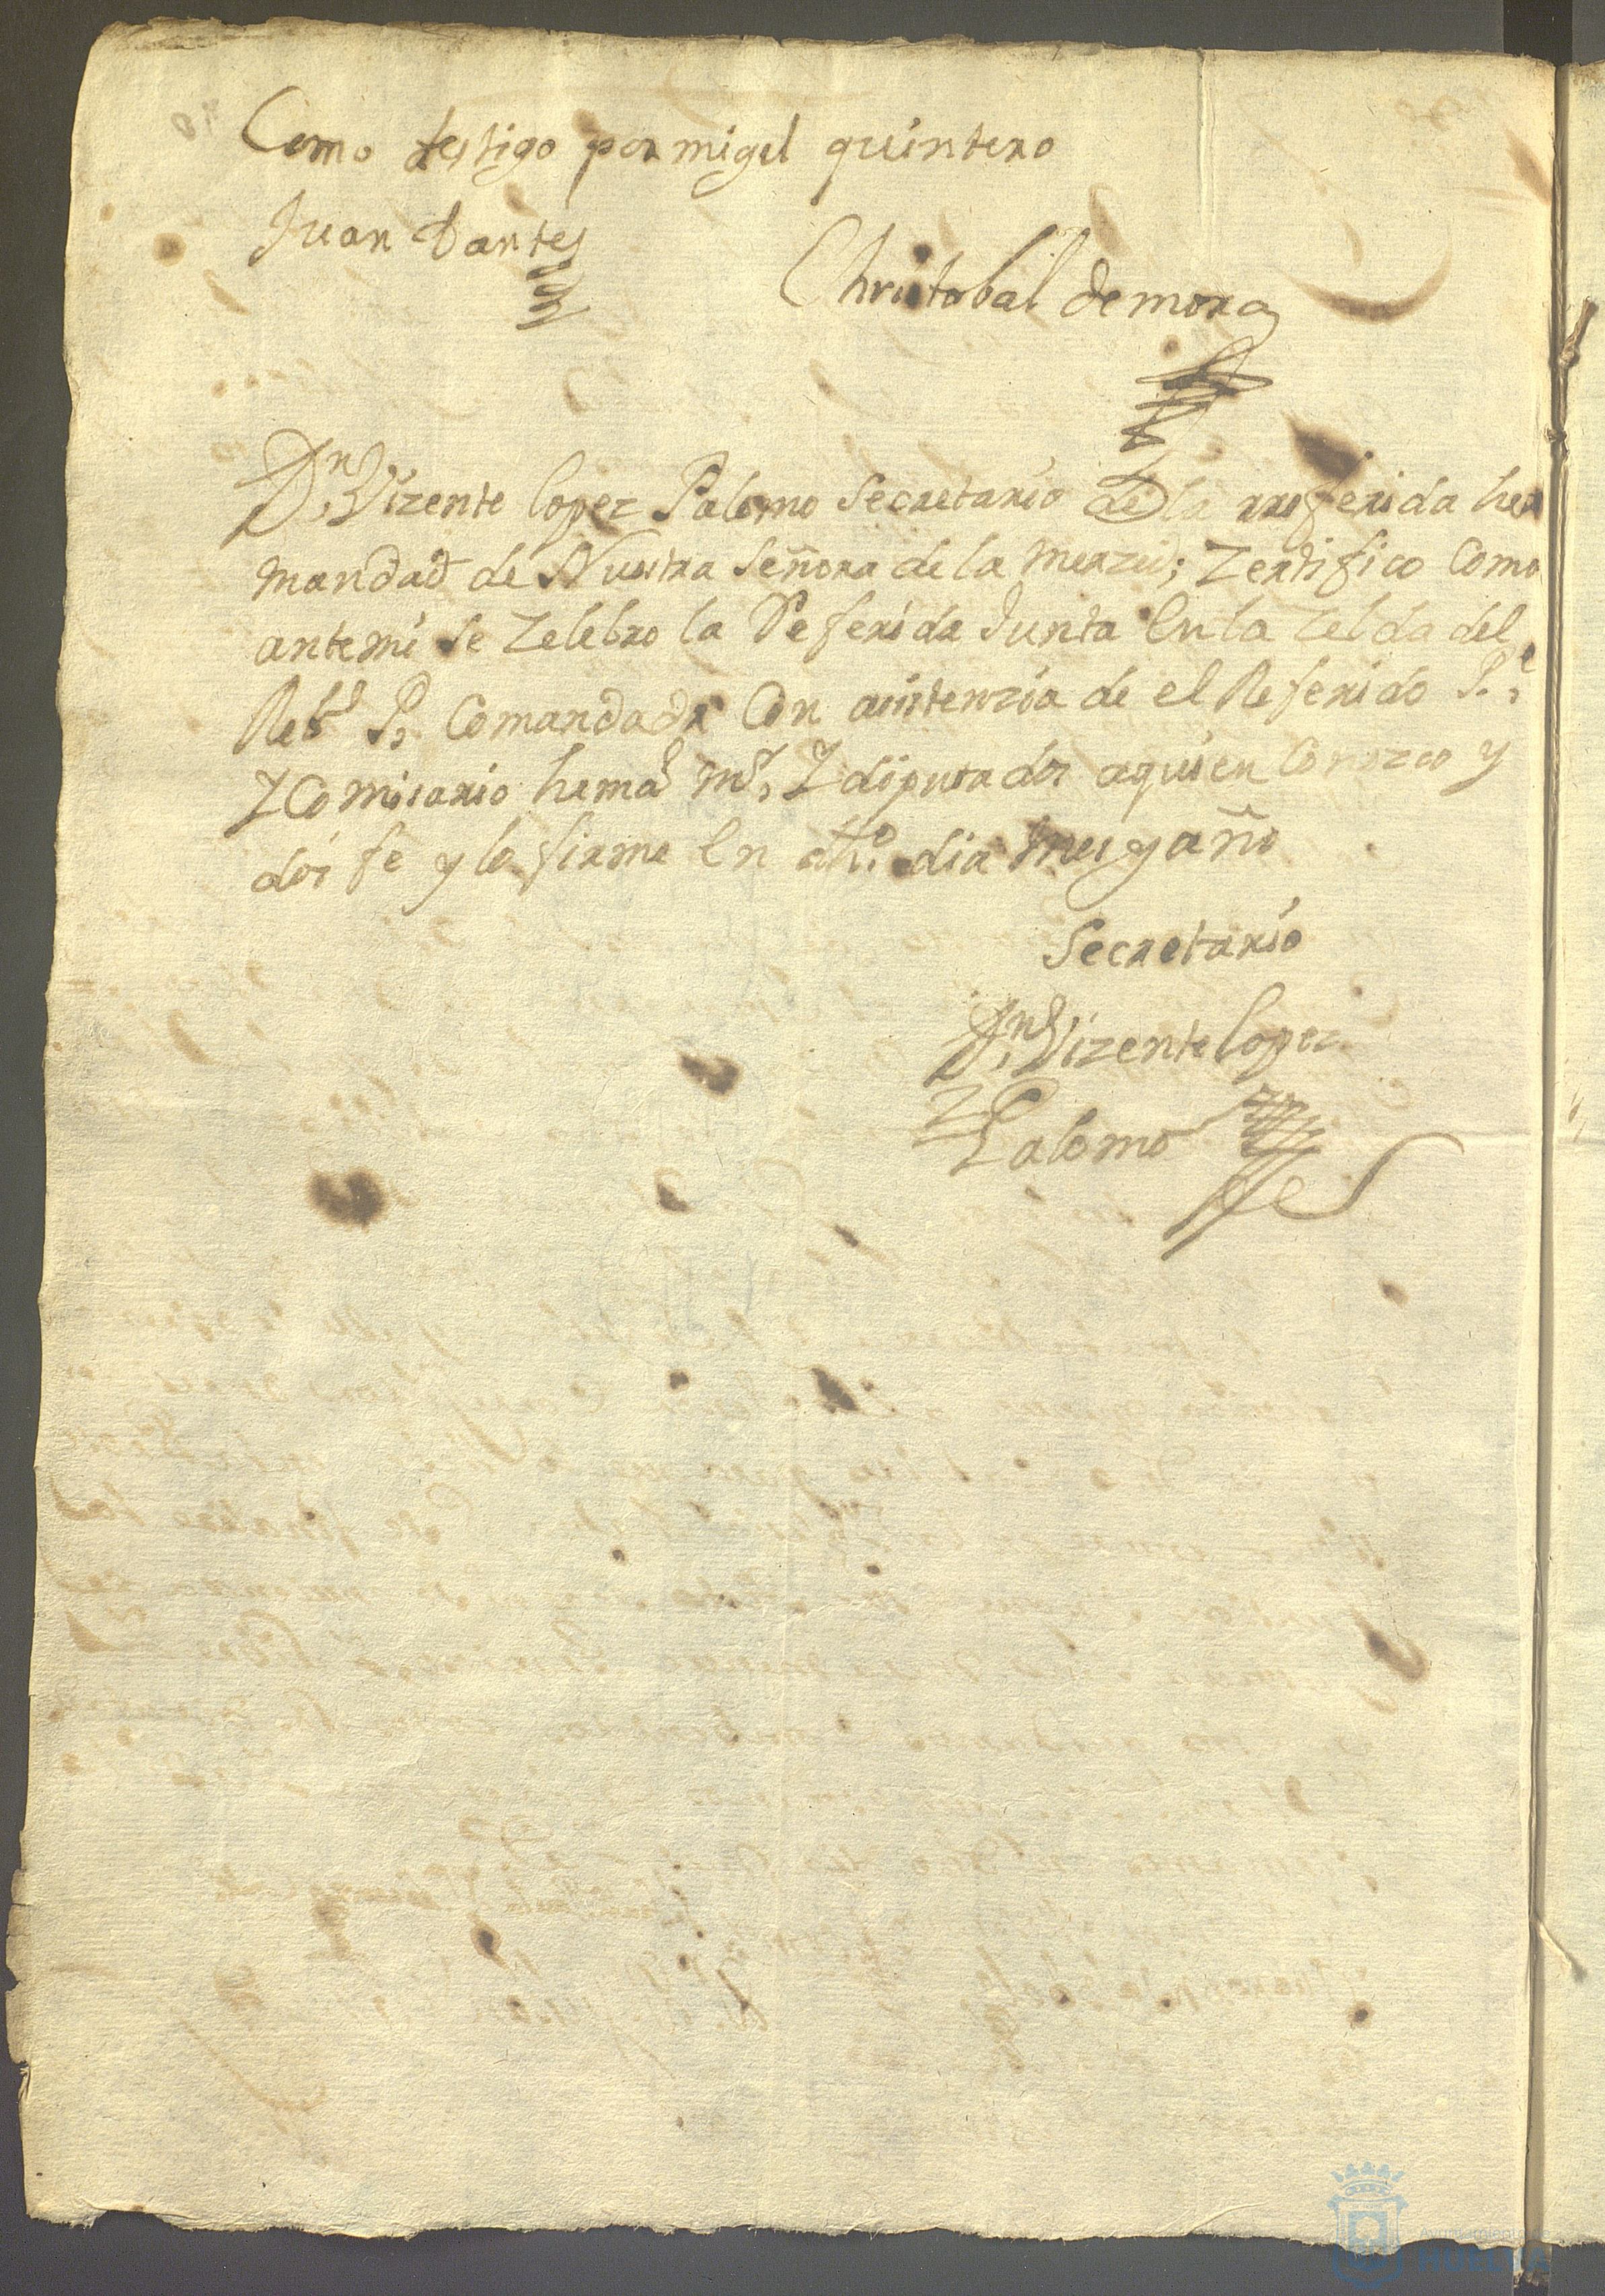 Como testigo por migel quintero
Juan Dantes
Christobal de mora
Dn. Vizente lopez Palomo Secretario de la rreferida her
mandad de Nuestra Señora de la Merzed; Zertifico Como
antemi se Zelebro la Referida Junta En la Zelda del
Rebd P. Comandadr Con asistenzia de el Referido Pe.
Y Comisario hermo mr, Y diputados aquien Conozco y
doi fe y lo firme En dho. dia mes y año
Secretario
Dn. Vizente lopez
Y Palomo
Ayuntamiento de
HUELVA